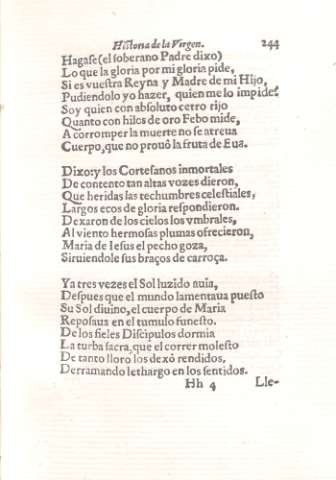 Historia de la Virgen. 244
Hagaſe (el ſoberano Padre dixo)
Lo que la gloria por mi gloria pide,
Si es vueſtra Reyna y Madre de mi Hijo,
Pudiendolo yo hazer, quien me lo impide?
Soy quien con abſoluto cetro rijo
Quanto con hilos de oro Febo mide,
A corromper la muerte no ſe atreua
Cuerpo, que no prouò la fruta de Eua.
Dixo: y los Corteſanos inmortales
De contento tan altas vozes dieron,
Que heridas las techumbres celeſtiales,
Largos ecos de gloria reſpondieron.
Dexaron de los cielos los vmbrales,
Al viento hermoſas plumas ofrecieron,
Maria de Ieſus el pecho goza,
Siruiendole ſus braços de carroça.
Ya tres vezes el Sol luzido auia,
Deſpues que el mundo lamentaua pueſto
Su Sol diuino, el cuerpo de Maria
Repoſaua en el tumulo funeſto.
De los fieles Diſcipulos dormia
La turba ſacra, que el correr moleſto
De tanto lloro los dexò rendidos,
Derramando lethargo en los ſentidos.
Hh 4 Lle-